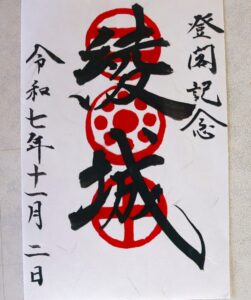 登閣記念
綾城
令和七年十一月二日